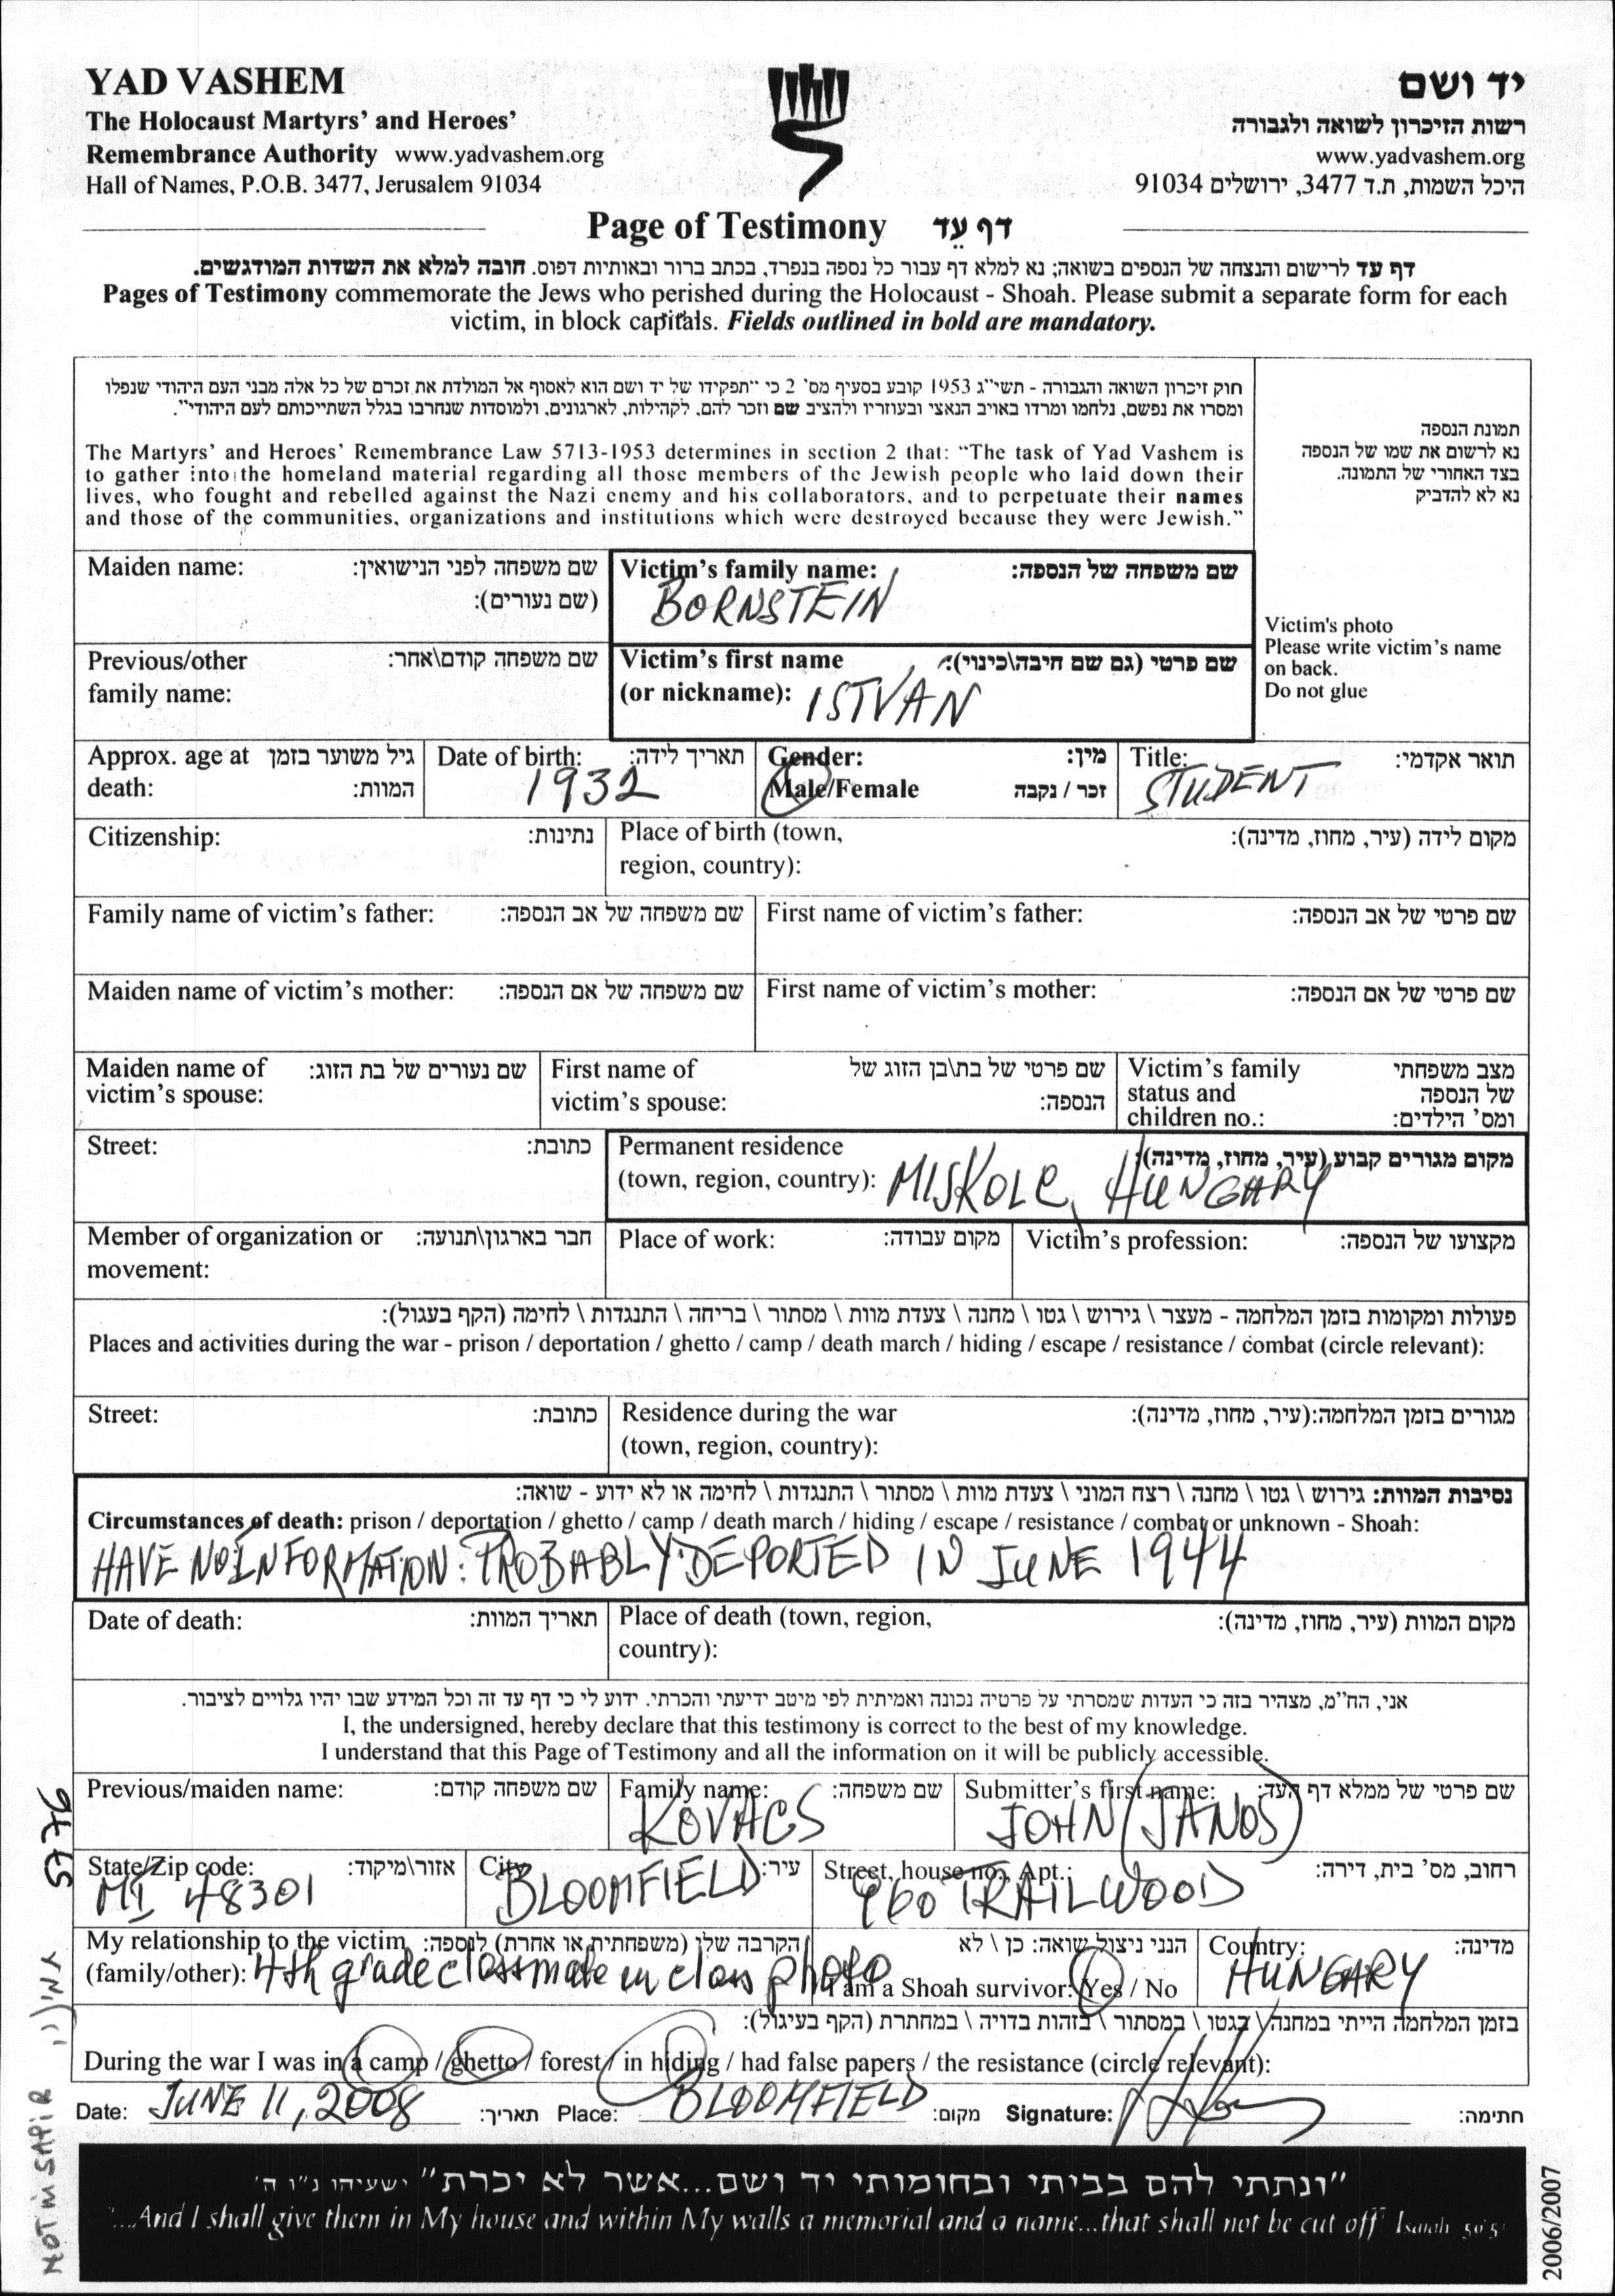 YAD VASHEM
The Holocaust Martyrs' and Heroes'
Remembrance Authority www.yadvashem.org
Hall of Names, P.O.B. 3477, Jerusalem 91034
יד ושם
רשות הזיכרון לשואה ולגבורה
www.yadvashem.org
היכל השמות, ת.ד 3477, ירושלים 91034
Page of Testimony דף עֵד
דף עד לרישום והנצחה של הנספים בשואה; נא למלא דף עבור כל נספה בנפרד, בכתב ברור ובאותיות דפוס. חובה למלא את השדות המודגשים.
Pages of Testimony commemorate the Jews who perished during the Holocaust - Shoah. Please submit a separate form for each
victim, in block capitals. Fields outlined in bold are mandatory.
חוק זיכרון השואה והגבורה - תשי"ג 1953 קובע בסעיף מס' 2 כי "תפקידו של יד ושם הוא לאסוף אל המולדת את זכרם של כל אלה מבני העם היהודי שנפלו
ומסרו את נפשם, נלחמו ומרדו באויב הנאצי ובעוזריו ולהציב שם וזכר להם, לקהילות, לארגונים, ולמוסדות שנחרבו בגלל השתייכותם לעם היהודי".
The Martyrs' and Heroes' Remembrance Law 5713-1953 determines in section 2 that: "The task of Yad Vashem is
to gather into the homeland material regarding all those members of the Jewish people who laid down their
lives, who fought and rebelled against the Nazi enemy and his collaborators, and to perpetuate their names
and those of the communities, organizations and institutions which were destroyed because they were Jewish."
תמונת הנספה
נא לרשום את שמו של הנספה
בצד האחורי של התמונה.
נא לא להדביק
Victim's photo
Please write victim's name
on back.
Do not glue
Maiden name: שם משפחה לפני הנישואין:
(שם נעורים):
Victim's family name: שם משפחה של הנספה:
BORNSTEIN
Previous/other שם משפחה קודם\אחר:
family name:
Victim's first name שם פרטי (גם שם חיבה\כינוי):
(or nickname): ISTVAN
Approx. age at גיל משוער בזמן
death: המוות:
Date of birth: תאריך לידה:
1932
Gender: מין:
Male/Female זכר / נקבה
Title: תואר אקדמי:
STUDENT
Citizenship: נתינות:
Place of birth (town, מקום לידה (עיר, מחוז, מדינה):
region, country):
Family name of victim's father: שם משפחה של אב הנספה:
First name of victim's father: שם פרטי של אב הנספה:
Maiden name of victim's mother: שם משפחה של אם הנספה:
First name of victim's mother: שם פרטי של אם הנספה:
Maiden name of שם נעורים של בת הזוג:
victim's spouse:
First name of שם פרטי של בת\בן הזוג של
victim's spouse: הנספה:
Victim's family מצב משפחתי
status and של הנספה
children no.: ומס' הילדים:
Street: כתובת:
Permanent residence מקום מגורים קבוע (עיר, מחוז, מדינה):
(town, region, country): MISKOLC, HUNGARY
Member of organization or חבר בארגון\תנועה:
movement:
Place of work: מקום עבודה:
Victim's profession: מקצועו של הנספה:
פעולות ומקומות בזמן המלחמה - מעצר \ גירוש \ גטו \ מחנה \ צעדת מוות \ מסתור \ בריחה \ התנגדות \ לחימה (הקף בעגול):
Places and activities during the war - prison / deportation / ghetto / camp / death march / hiding / escape / resistance / combat (circle relevant):
Street: כתובת:
Residence during the war מגורים בזמן המלחמה:(עיר, מחוז, מדינה):
(town, region, country):
נסיבות המוות: גירוש \ גטו \ מחנה \ רצח המוני \ צעדת מוות \ מסתור \ התנגדות \ לחימה או לא ידוע - שואה:
Circumstances of death: prison / deportation / ghetto / camp / death march / hiding / escape / resistance / combat or unknown - Shoah:
HAVE NO INFORMATION. PROBABLY DEPORTED IN JUNE 1944
Date of death: תאריך המוות:
Place of death (town, region, מקום המוות (עיר, מחוז, מדינה):
country):
אני, הח"מ, מצהיר בזה כי העדות שמסרתי על פרטיה נכונה ואמיתית לפי מיטב ידיעתי והכרתי. ידוע לי כי דף עד זה וכל המידע שבו יהיו גלויים לציבור.
I, the undersigned, hereby declare that this testimony is correct to the best of my knowledge.
I understand that this Page of Testimony and all the information on it will be publicly accessible.
Previous/maiden name: שם משפחה קודם:
Family name: שם משפחה:
KOVACS
Submitter's first name: שם פרטי של ממלא דף העד:
JOHN (JANOS)
State/Zip code: אזור\מיקוד:
MI 48301
City: עיר:
BLOOMFIELD
Street, house no., Apt.: רחוב, מס' בית, דירה:
960 TRAILWOOD
My relationship to the victim הקרבה שלי (משפחתית או אחרת) לנספה:
(family/other): 4th grade classmate in class photo
הנני ניצול שואה: כן \ לא
I am a Shoah survivor: Yes / No
Country: מדינה:
HUNGARY
בזמן המלחמה הייתי במחנה \ בגטו \ במסתור \ בזהות בדויה \ במחתרת (הקף בעיגול):
During the war I was in a camp / ghetto / forest / in hiding / had false papers / the resistance (circle relevant):
Date: JUNE 11, 2008 תאריך: Place: BLOOMFIELD מקום: Signature: חתימה:
"ונתתי להם בביתי ובחומותי יד ושם...אשר לא יכרת" ישעיהו נ"ו ה'
"...And I shall give them in My house and within My walls a memorial and a name...that shall not be cut off" Isaiah 56:5
2006/2007
NOT IN SAPIR
5776